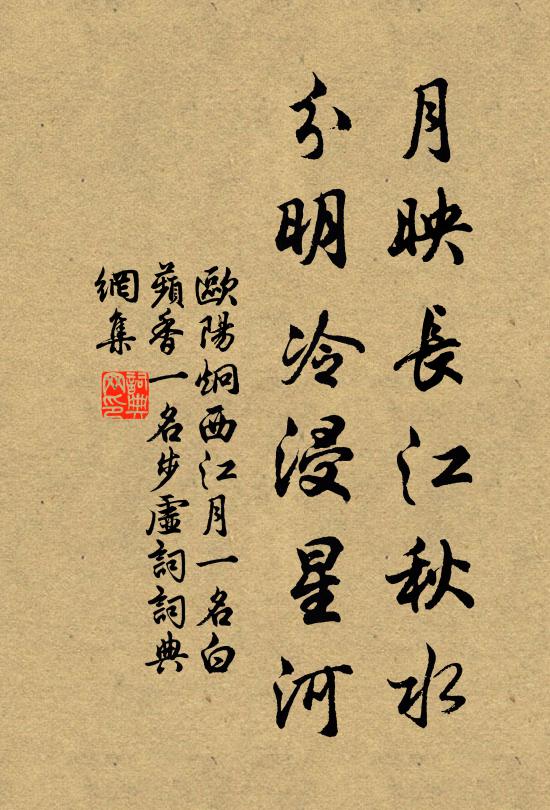 月映長江秋水
分明冷浸星河
歐陽炯西江月一名白
蘋香一名步虛詞詞典
網集
詞典
网印